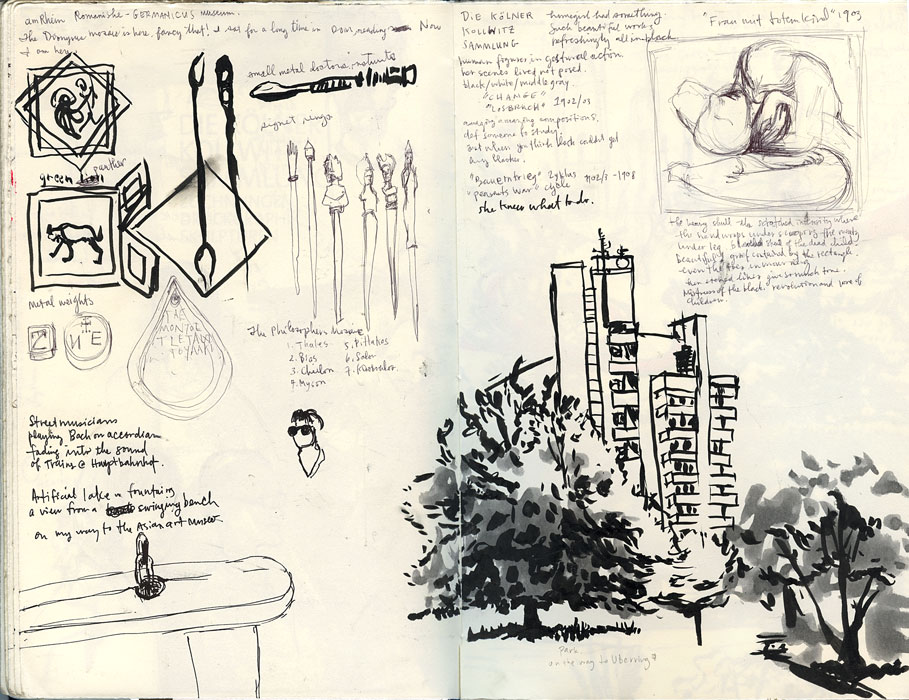 am Rhein Romanishe - GERMANICUS museum.
the Dionysus mosaic is here, fancy that! I sat for a long time in Dom, reading. Now
I am here,
small metal doctors instruments
signet rings
green lion
panther
metal weights
The Philosophers Mosaic
1. Thales
2. Bias
3. Cheilon
4. Myson
5. Pittakos
6. Solon
7.
Street musicians
playing Bach on accordian
fading into the sound
of Trains @ Hauptbahnhof.
Artificial lake w fountains
a view from a swinging bench
on my way to the Asian art museum
DIE KÖLNER
KOLLWITZ
SAMMLUNG
had something
such beautiful work,
refreshingly all in black
human figures in gestural action
her scenes lived not posed.
black/white/middle gray.
"CHANGE"
"LOSBRUCH" 1902/03
amazing amazing compositions.
def someone to study.
Just when you think black couldn't get
any blacker.
"Bauernkrieg" Zyklus 1902/3 - 1908
"peasants war" cycle
she knew what to do.
"Frau mit totem Kind" 1903
the heavy skull the scratched intensity where
the hand wraps under
under leg skull of the dead child
beautifully grief contained by the rectangle.
even the
her etched lines give so much tone.
Mistress of the black, revolution and love of
children.
Park
on the way to